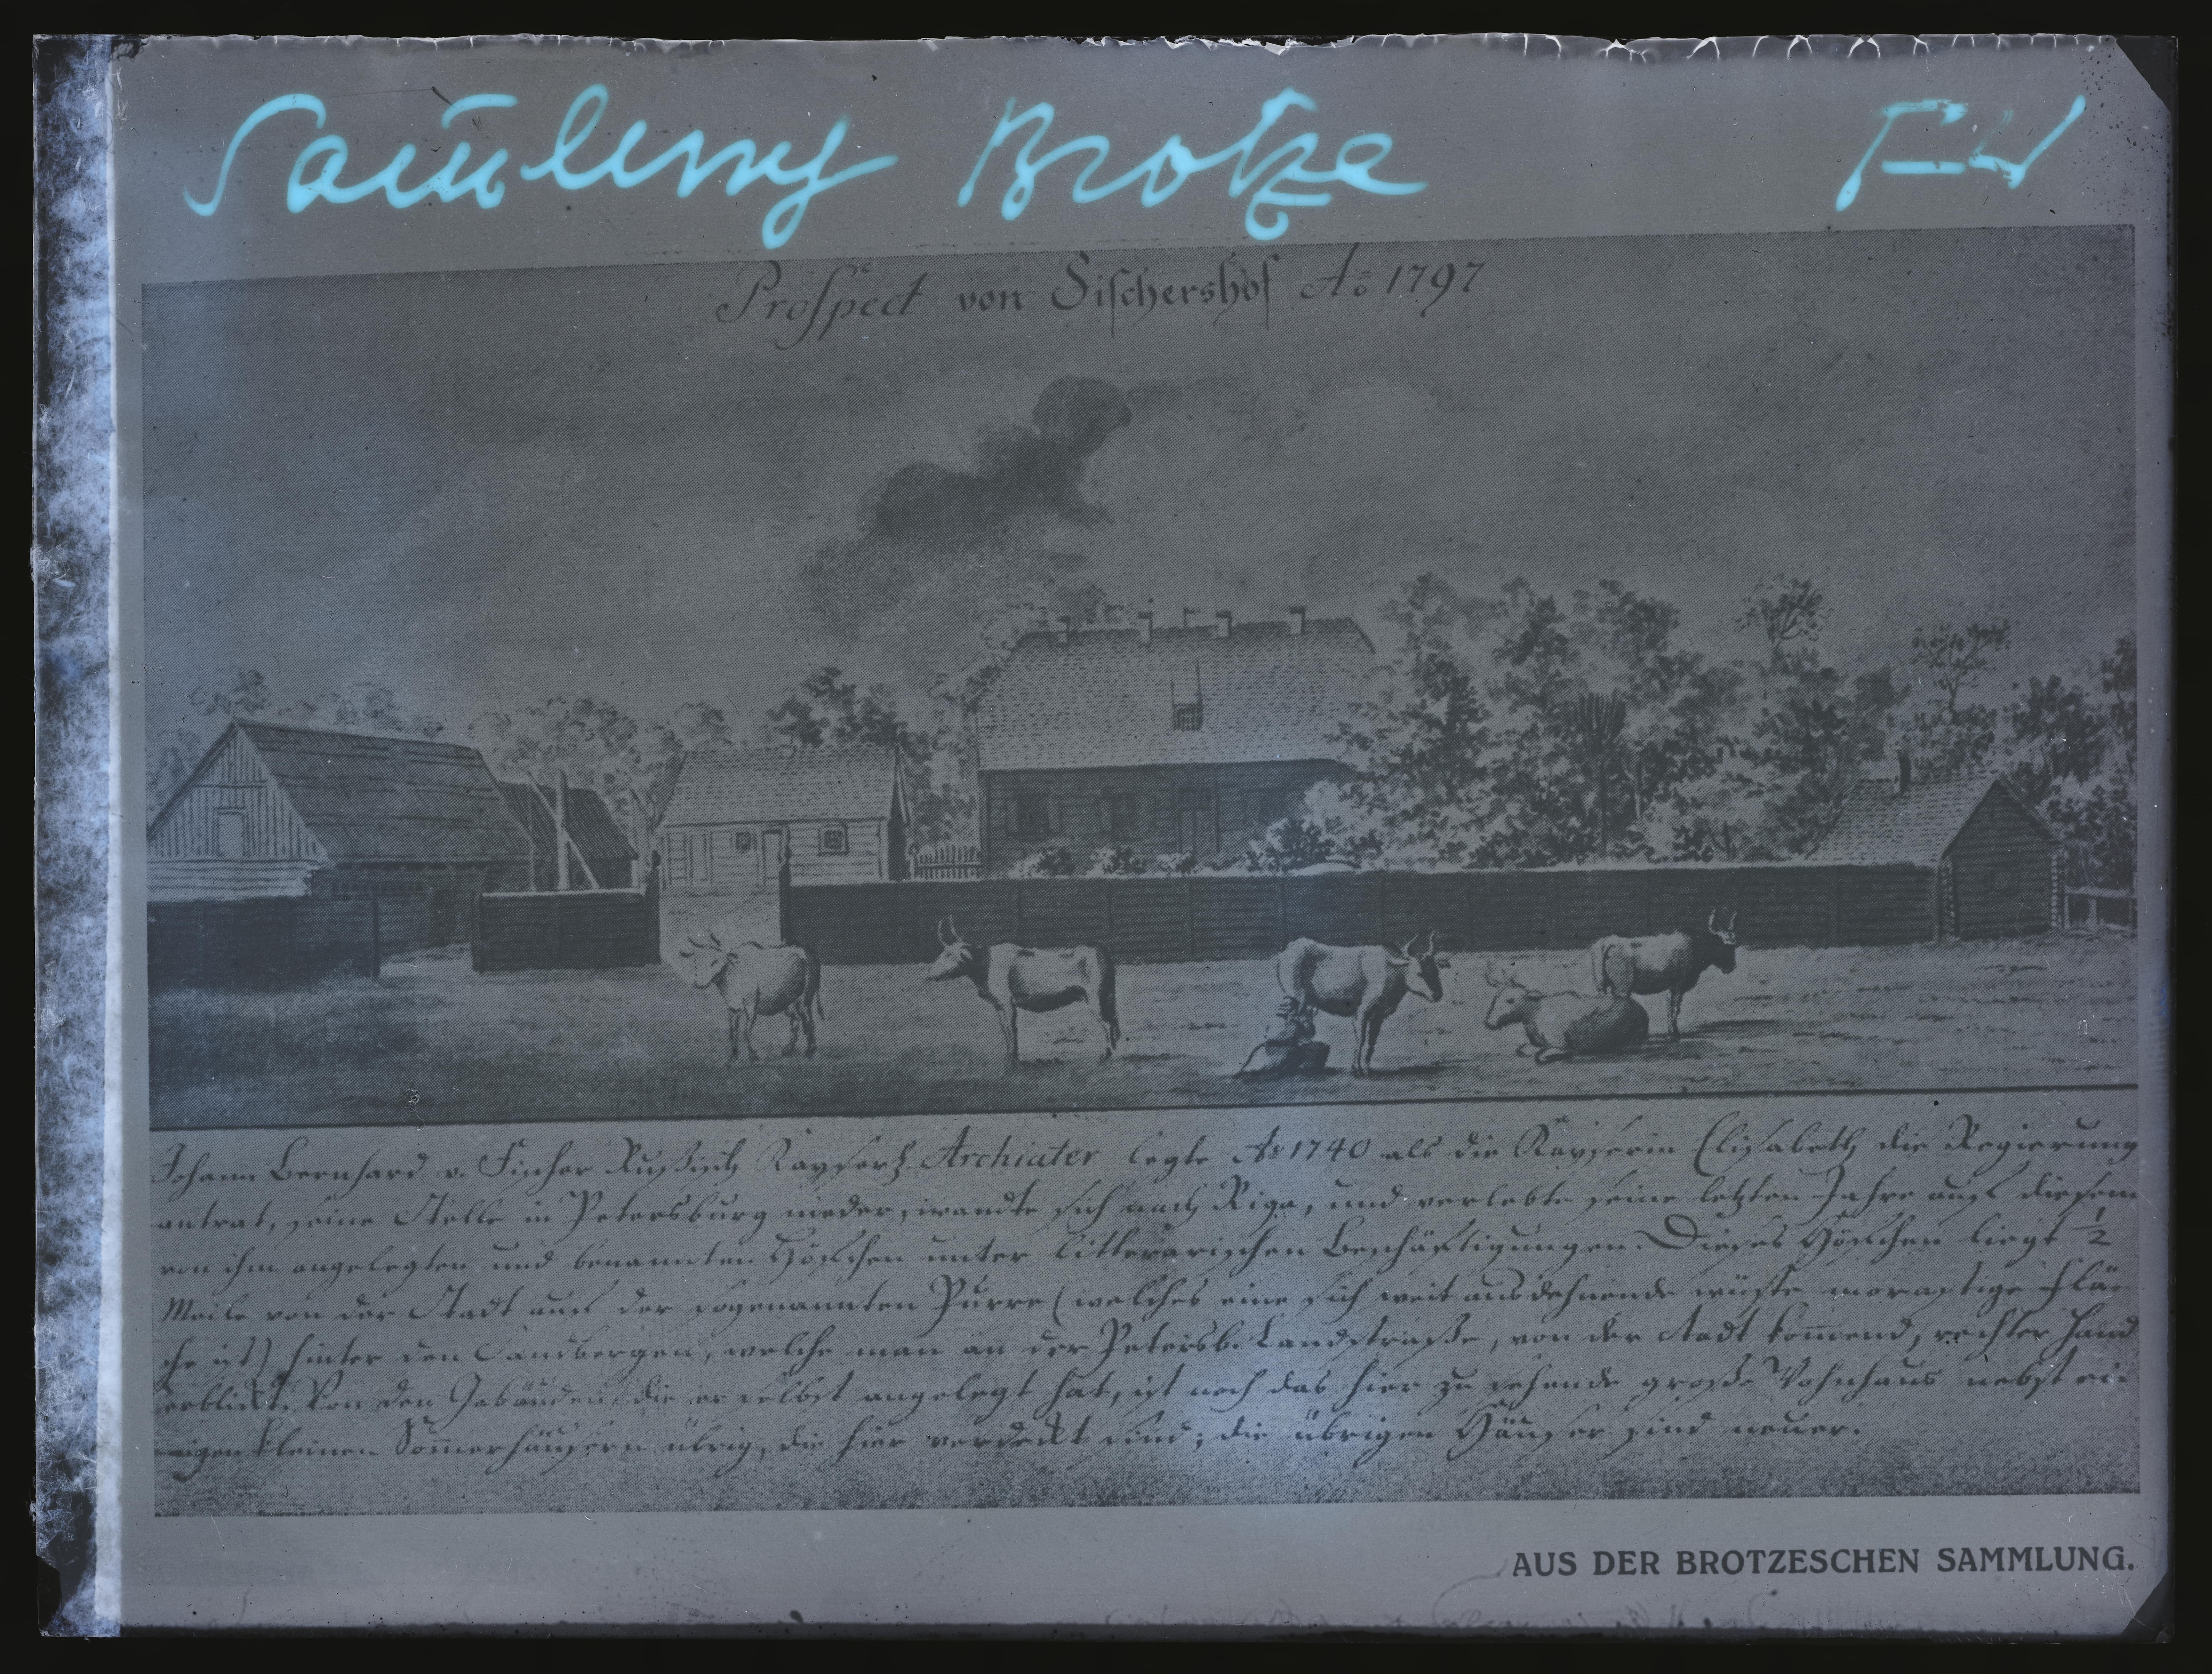 Sam̄lung Brotze
Prospect von Fischershof Aō 1797
Johann Bernhard v. Fischer Rußisch Kayserl. Archiater legte Aō 1740 als die Kayserin Elisabeth die Regierung
antrat, seine Stelle in Petersburg nieder, wandte sich nach Riga, und verlebte seine letzten Jahre auf diesem
von ihm angelegten und benannten Höfchen unter litterarischen Beschäftigungen. Dieses Höfchen liegt ½
Meile von der Stadt auf der sogenannten Purre (welches eine sich weit ausdehnende wüste morastige Flä-
che ist) hinter den Sandbergen, welche man an der Petersb. Landstraße, von der Stadt kom̄end, rechter Hand
erblickt. Von den Gebäuden, die er selbst angelegt hat, ist noch das hier zu sehende große Wohnhaus nebst ei-
nigen kleinen Som̄erhäusern übrig, die hier verdeckt sind; die übrigen Häuser sind neuer.
AUS DER BROTZESCHEN SAMMLUNG.